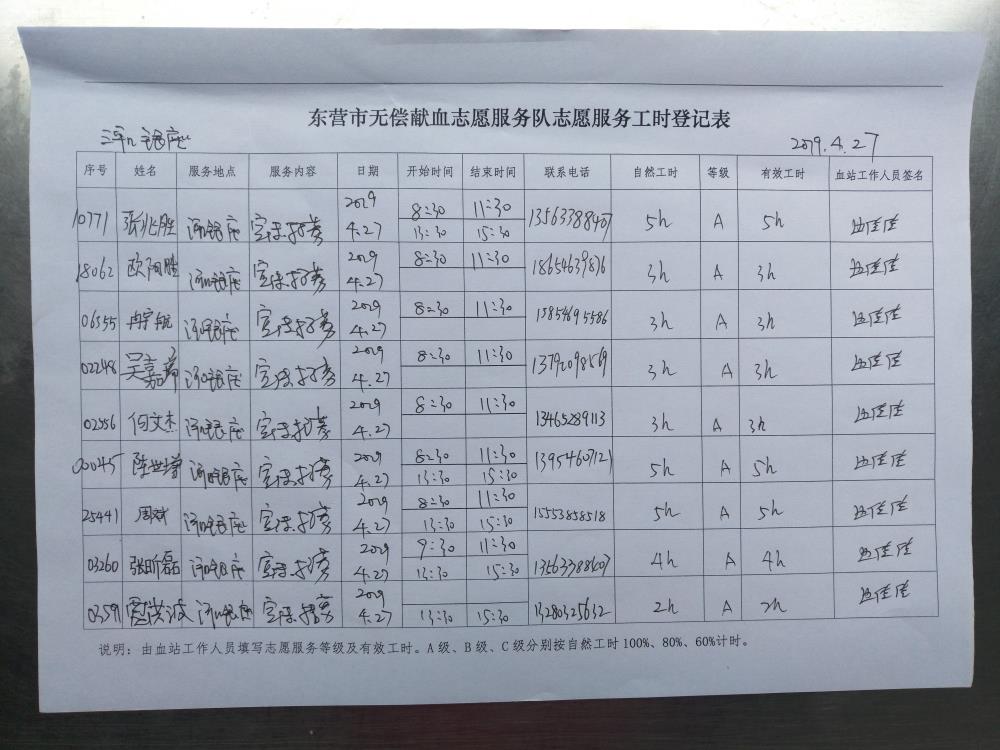 东营市无偿献血志愿服务队志愿服务工时登记表
银座 2019.4.27
序号 姓名 服务地点 服务内容 日期 开始时间 结束时间 联系电话 自然工时 等级 有效工时 血站工作人员签名
10771 张兆胜 银座 宣传招募 2019 4.27 8:30 11:30 13:30 15:30 13563388407 5h A 5h 佳佳
18062 欧阳胜 银座 宣传招募 2019 4.27 8:30 11:30 18654639876 3h A 3h 佳佳
06555 冉宇航 银座 宣传招募 2019 4.27 8:30 11:30 15854695586 3h A 3h 佳佳
02248 吴嘉 银座 宣传招募 2019 4.27 8:30 11:30 3h A 3h 佳佳
02556 何文杰 银座 宣传招募 2019 4.27 8:30 11:30 13465289113 3h A 3h 佳佳
00045 陈世增 银座 宣传招募 2019 4.27 8:30 11:30 13:30 15:30 13954607121 5h A 5h 佳佳
25441 周斌 银座 宣传招募 2019 4.27 8:30 11:30 13:30 15:30 15553858518 5h A 5h 佳佳
03260 张昕磊 银座 宣传招募 2019 4.27 9:30 11:30 13:30 15:30 13563388607 4h A 4h 佳佳
03591 银座 宣传招募 2019 4.27 13:30 15:30 13280325632 2h A 2h 佳佳
说明：由血站工作人员填写志愿服务等级及有效工时。A级、B级、C级分别按自然工时100%、80%、60%计时。